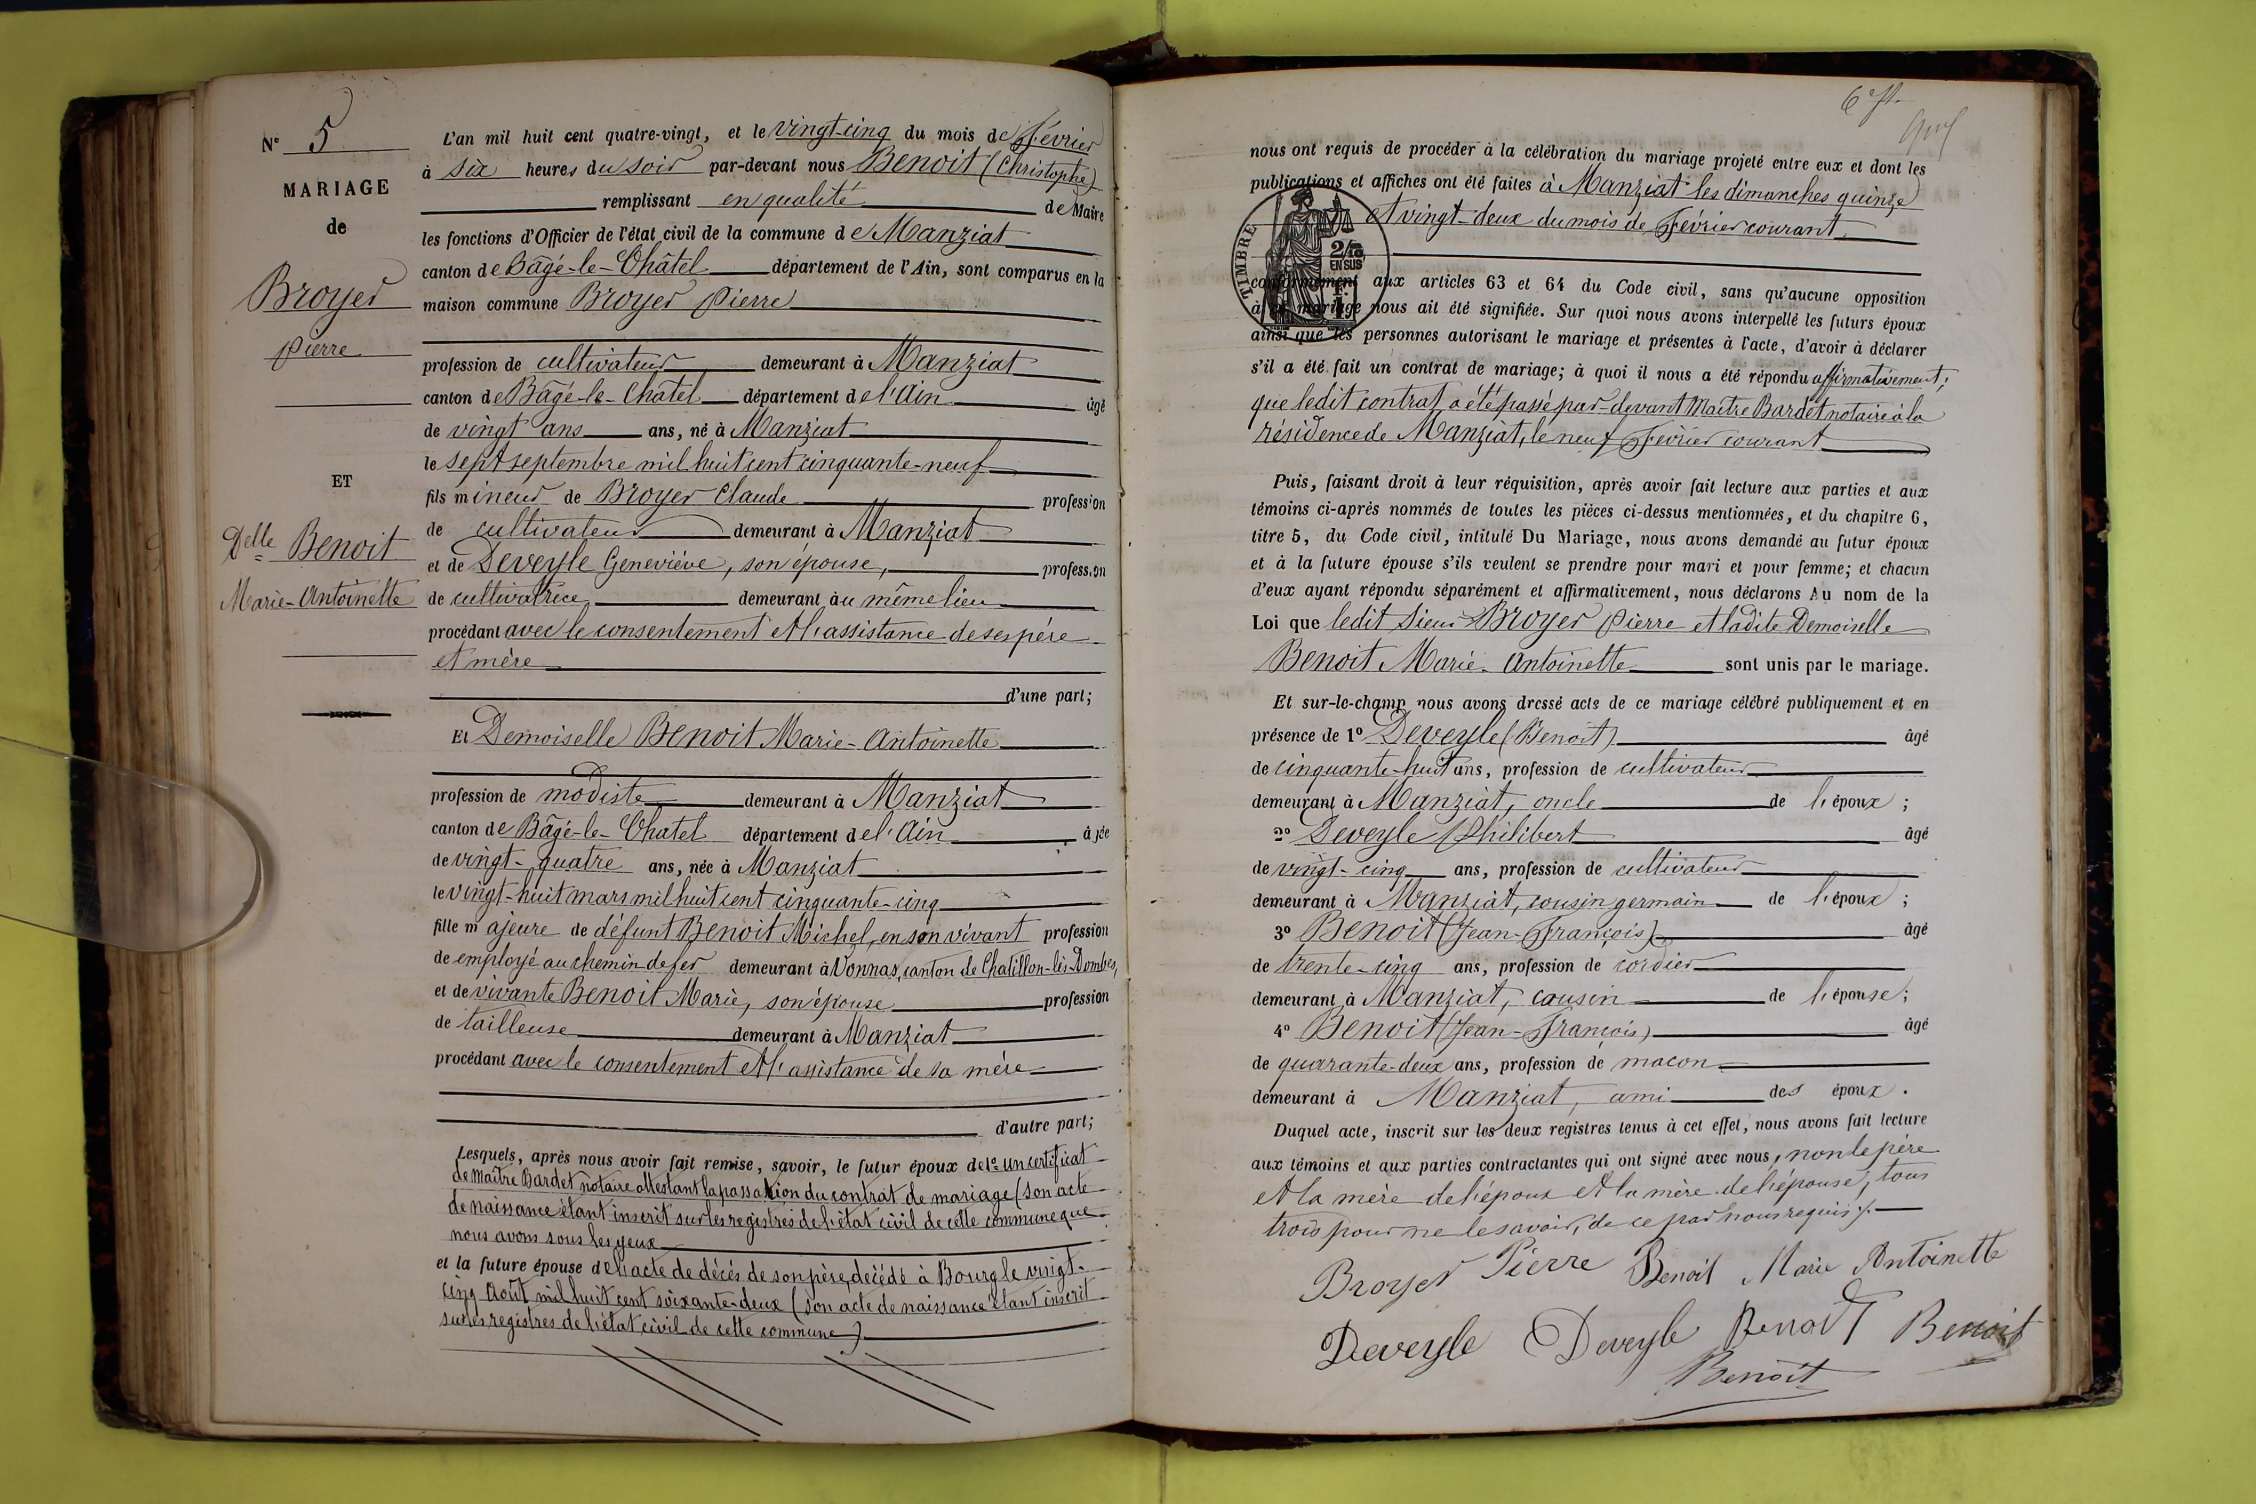 N° 5
MARIAGE
de
Broyer
Pierre
ET
Delle Benoit
Marie-Antoinette
L'an mil huit cent quatre-vingt, et le vingt-cinq du mois de Février
à six heures du soir par-devant nous Benoit (Christophe)
remplissant en qualité de Maire
les fonctions d'Officier de l'état civil de la commune de Manziat
canton de Bâgé-le-Châtel département de l'Ain, sont comparus en la
maison commune Broyer Pierre
profession de cultivateur demeurant à Manziat
canton de Bâgé-le-Châtel département de l'Ain âgé
de vingt ans ans, né à Manziat
le sept septembre mil huit cent cinquante-neuf
fils mineur de Broyer Claude profession
de cultivateur demeurant à Manziat
et de Deveyle Geneviève, son épouse, profession
de cultivatrice demeurant au même lieu
procédant avec le consentement et l'assistance de ses père
et mère
d'une part;
Et Demoiselle Benoit Marie-Antoinette
profession de modiste demeurant à Manziat
canton de Bâgé-le-Chatel département de l'Ain âgée
de vingt-quatre ans, née à Manziat
le vingt-huit mars mil huit cent cinquante-cinq
fille majeure de défunt Benoit Michel, en son vivant profession
de employé au chemin de fer demeurant à Vonnas, canton de Chatillon-lès-Dombes,
et de vivante Benoit Marie, son épouse profession
de tailleuse demeurant à Manziat
procédant avec le consentement et l'assistance de sa mère
d'autre part;
Lesquels, après nous avoir fait remise, savoir, le futur époux de 1° un certificat
de Maître Bardet notaire attestant la passation du contrat de mariage (son acte
de naissance étant inscrit sur les registres de l'état civil de cette commune que
nous avons sous les yeux
et la future épouse de l'acte de décès de son père, décédé à Bourg le vingt-
cinq Août mil huit cent soixante-deux (son acte de naissance étant inscrit
sur les registres de l'état civil de cette commune)
nous ont requis de procéder à la célébration du mariage projeté entre eux et dont les
publications et affiches ont été faites à Manziat les dimanches quinze
et vingt-deux du mois de Février courant
TIMBRE
2/10
EN SUS
conformément aux articles 63 et 64 du Code civil, sans qu'aucune opposition
à ce mariage nous ait été signifiée. Sur quoi nous avons interpellé les futurs époux
ainsi que les personnes autorisant le mariage et présentes à l'acte, d'avoir à déclarer
s'il a été fait un contrat de mariage; à quoi il nous a été répondu affirmativement;
que ledit contrat a été passé par-devant Maître Bardet notaire à la
résidence de Manziat, le neuf Février courant
Puis, faisant droit à leur réquisition, après avoir fait lecture aux parties et aux
témoins ci-après nommés de toutes les pièces ci-dessus mentionnées, et du chapitre 6,
titre 5, du Code civil, intitulé Du Mariage, nous avons demandé au futur époux
et à la future épouse s'ils veulent se prendre pour mari et pour femme; et chacun
d'eux ayant répondu séparément et affirmativement, nous déclarons Au nom de la
Loi que ledit Sieur Broyer Pierre et ladite Demoiselle
Benoit Marie-Antoinette sont unis par le mariage.
Et sur-le-champ nous avons dressé acte de ce mariage célébré publiquement et en
présence de 1° Deveyle (Benoit) âgé
de cinquante-huit ans, profession de cultivateur
demeurant à Manziat, oncle de l'époux;
2° Deveyle Philibert âgé
de vingt-cinq ans, profession de cultivateur
demeurant à Manziat, cousin germain de l'époux;
3° Benoit (Jean-François) âgé
de trente-cinq ans, profession de cordier
demeurant à Manziat, cousin de l'épouse;
4° Benoit (Jean-François) âgé
de quarante-deux ans, profession de macon
demeurant à Manziat, ami des époux.
Duquel acte, inscrit sur les deux registres tenus à cet effet, nous avons fait lecture
aux témoins et aux parties contractantes qui ont signé avec nous, non le père
et la mère de l'époux et la mère de l'épouse, tous
trois pour ne le savoir, de ce par nous requis
Broyer Pierre Benoit Marie Antoinette
Deveyle Deveyle Benoit Benoit
Benoit